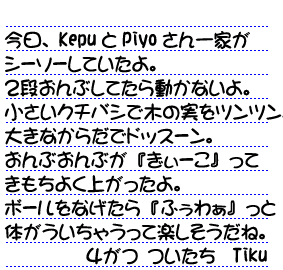 今日、KepuとPiyoさん一家が
シーソーしていたよ。
2段おんぶしてたら動かないよ。
小さいクチバシで木の実をツンツン、
大きなからだでドッスーン。
おんぶおんぶが『きぃーこ』って
きもちよく上がったよ。
ボールをなげたら『ふぅわぁ』っと
体がういちゃうって楽しそうだね。
4がつ ついたち Tiku